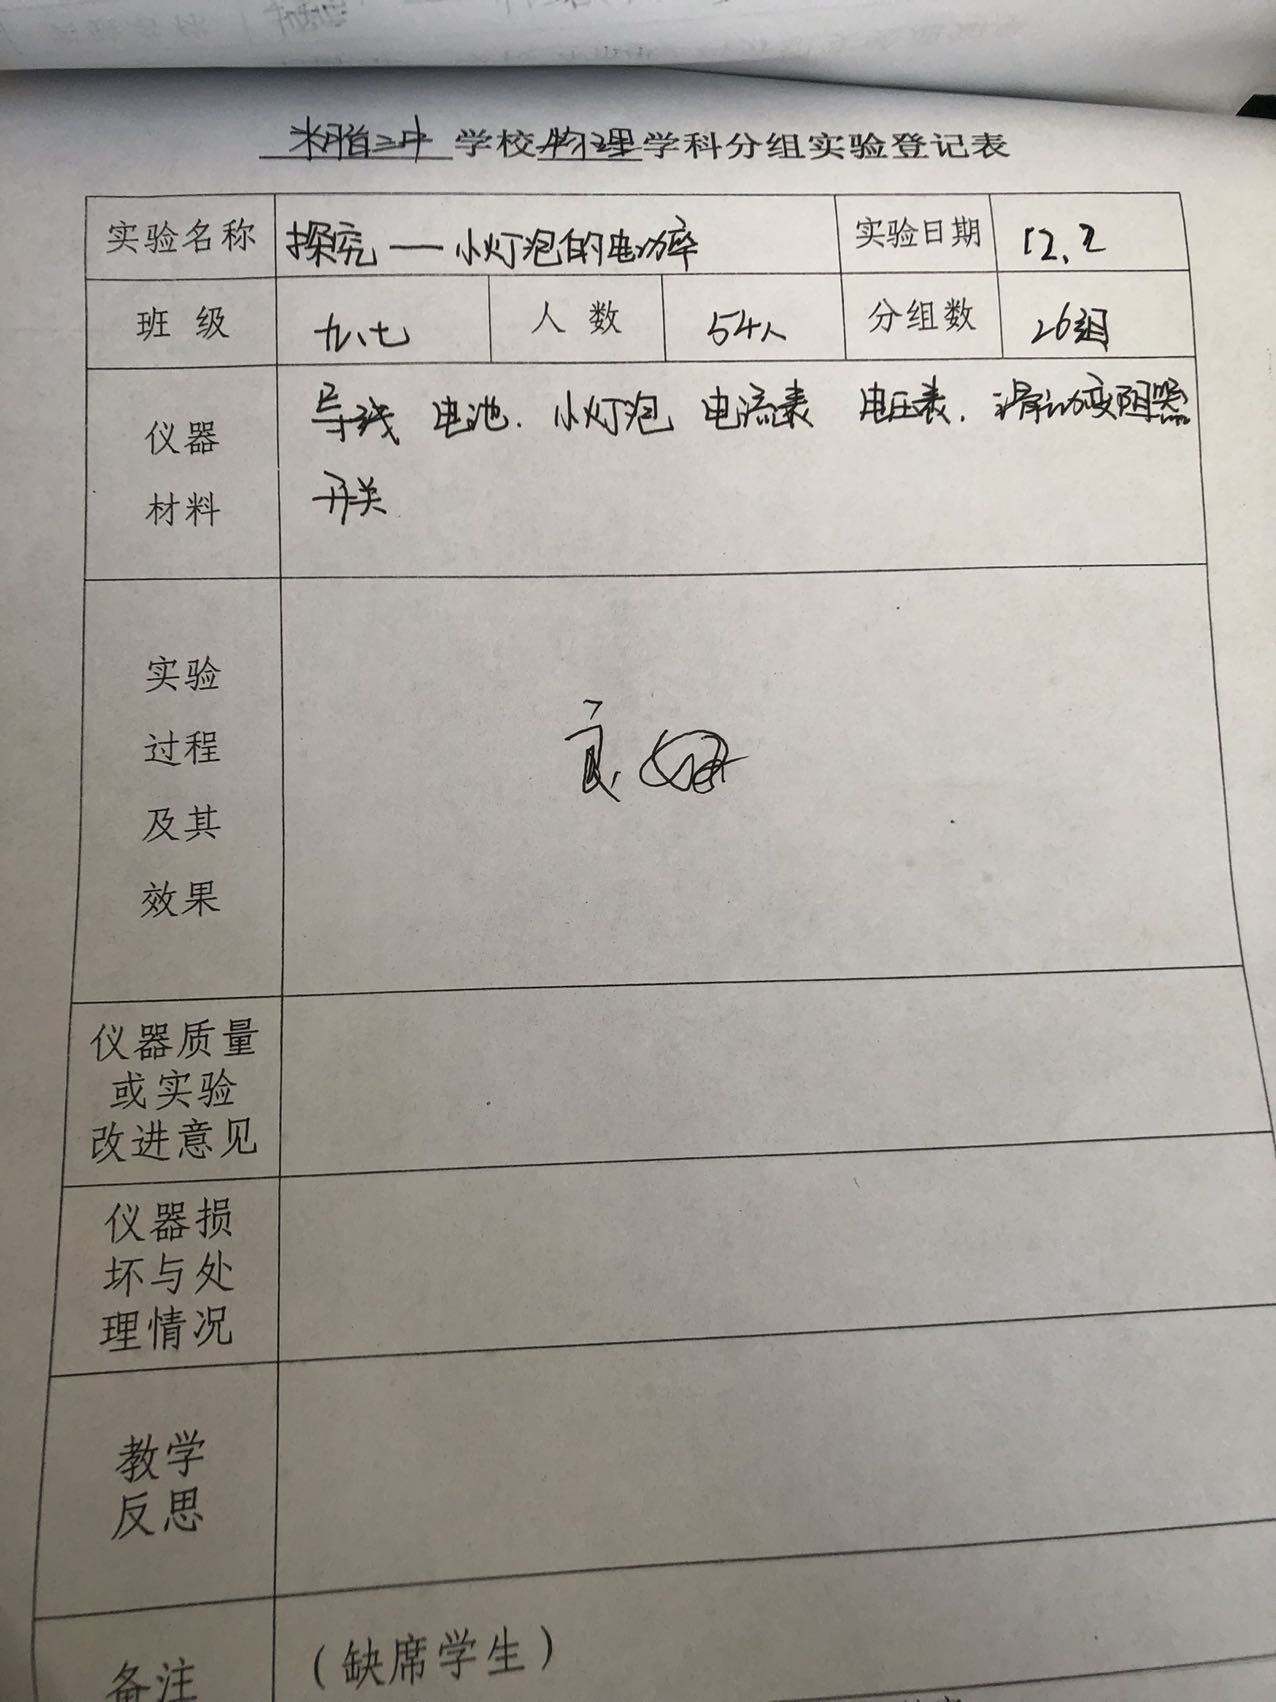 米脂三中学校物理学科分组实验登记表
实验名称 探究——小灯泡的电功率 实验日期 12.2
班级 九、七 人数 54人 分组数 26组
仪器 导线 电池. 小灯泡 电流表 电压表. 滑动变阻器
材料 开关
实验
过程
及其
效果
良好
仪器质量
或实验
改进意见
仪器损
坏与处
理情况
教学
反思
备注 (缺席学生)